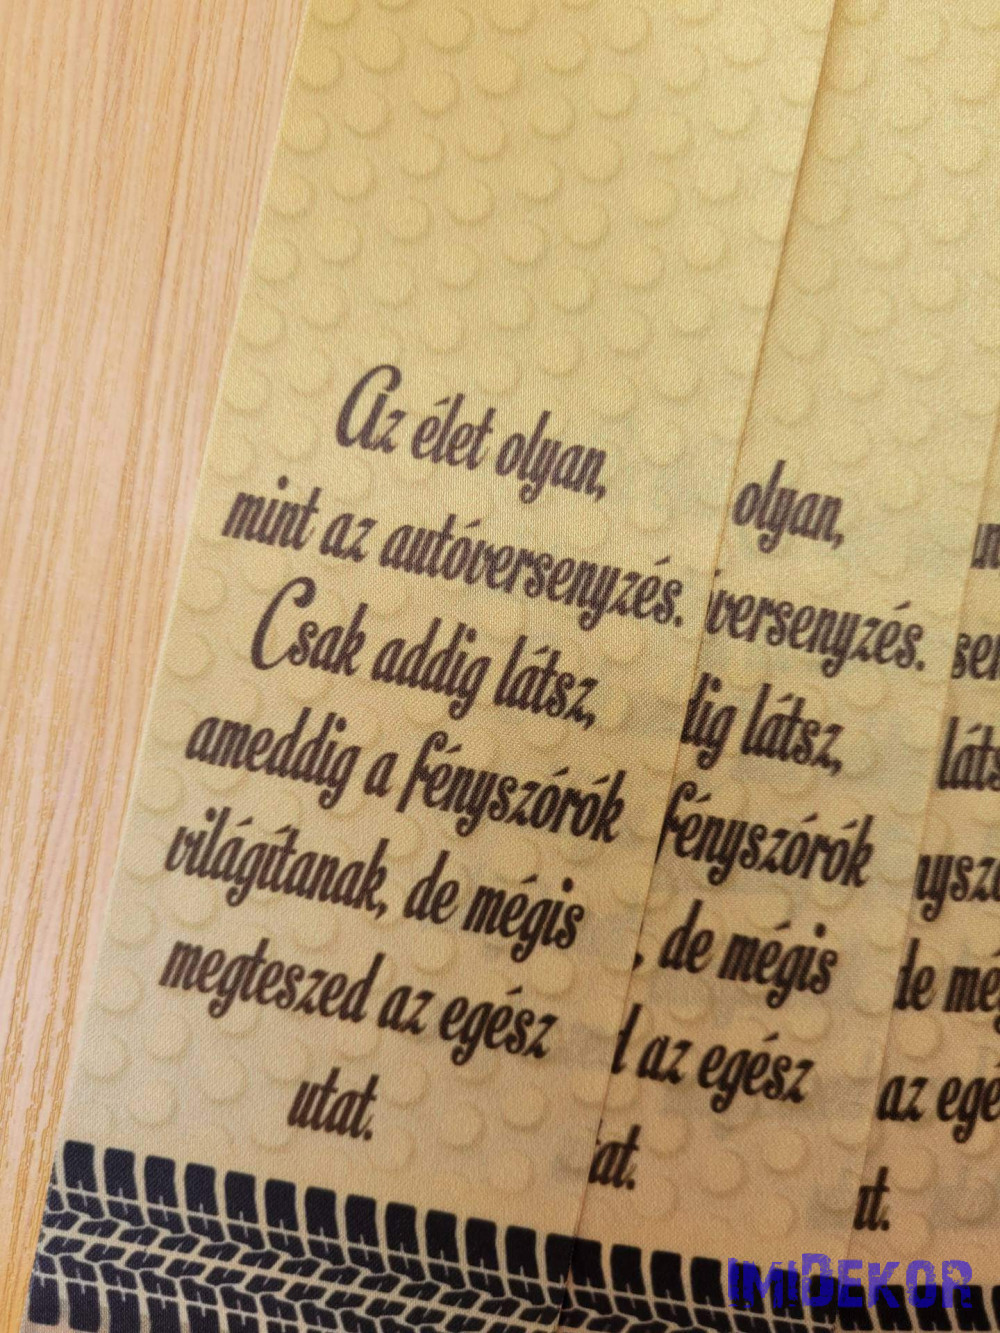 Az élet olyan,
mint az autóversenyzés.
Csak addig látsz,
ameddig a fényszórók
világítanak, de mégis
megteszed az egész
utat.
olyan,
versenyzés.
dig látsz,
fényszórók
, de mégis
d az egész
at.
sen
láts
nysz
de mé
az egé
t.
IMIDEKOR